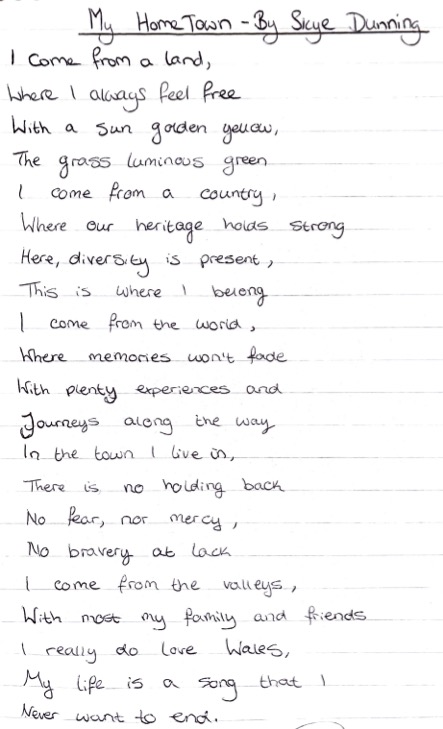 My HomeTown - By Skye Dunning
I come from a land,
Where I always feel free
With a sun golden yellow,
The grass luminous green
I come from a country,
Where our heritage holds strong
Here, diversity is present,
This is where I belong
I come from the world,
Where memories won't fade
With plenty experiences and
Journeys along the way
In the town I live in,
There is no holding back
No fear, nor mercy,
No bravery at lack
I come from the valleys,
With most my family and friends
I really do love Wales,
My life is a song that I
Never want to end.